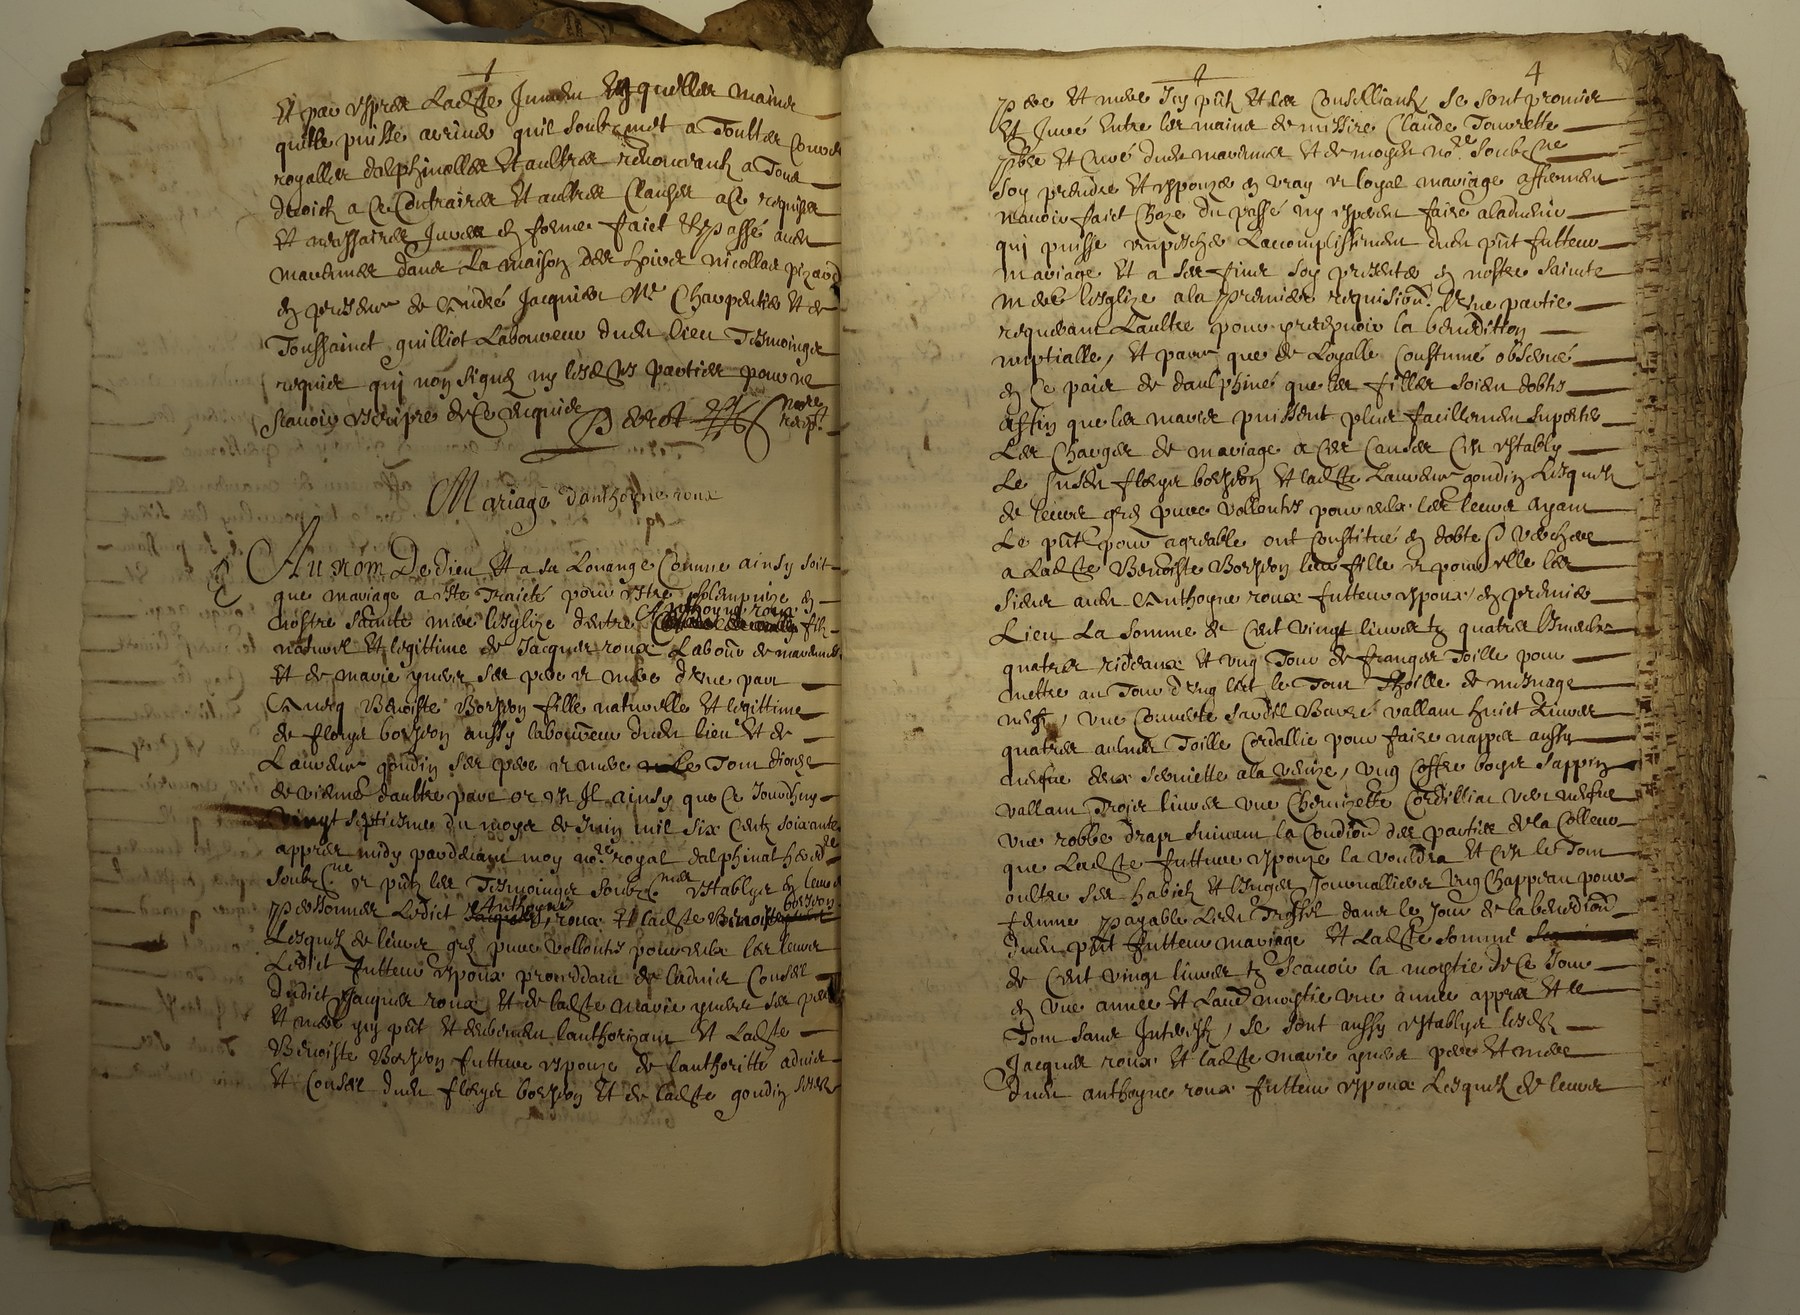 Et par exprès Ladte Jument Esquelles maine
quelle puisse arriver quil soubzmet a Touttes Cours
royalles dalphinalles Et aultres renonceant a Tous
droict a Ce Contraires Et aultres Clauses a Ce requises
Et necessaires Jurées en forme faict Et passé audt
dans La maison des hoirs nicollas pizard
en presence de André Jacquier Mre Charpentier Et de
Toussainct guilliot Laboureur dudt lieu Tesmoings
requis qui non signé ny lesdtes parties pour ne
scavoir escripre de Ce requis Perrot nore recept
Mariage danthoyne roux
Au nom De dieu Et a sa Louange Comme ainsy soit
que mariage a esté Traicté pour estre sollempnizé en
nostre saincte mère lesglize dentre Anthoyne roux filz
naturel Et legittime de Jacques roux Labour de
Et de marie ses père et mère dune part
Avecq Benoiste fille naturelle Et legittime
de fleury aussy laboureur dudt lieu Et de
Laurence goudin ses père et mère Tous dioceze
de vienne daultre part or est Il ainsy que Ce Jourdhuy
vingt septiesme du moys de Juin mil six Centz soixante
appres midy pardevant moy nore royal dalphinal heredre
soubzne et pntz les Tesmoings soubz nmes establys en leurs
personnes Ledict Anthoyne roux Et ladte Benoiste
Lesquelz de leurs grés pure vollontés pour eulx Les leurs
Ledict futteur espoux proceddant de Ladvis Conseil
dudict Jacques roux Et de ladte marie ses père
Et mère icy pnt Et Lauthorizant Et Ladte
Benoiste futture espouze de lauthoritté advis
Et Conseil dudt fleury Et de ladte goudin sesdts
4
père Et mère Icy pntz Et les Conseilliantz Se sont promis
Et Juré Entre les mains de missire Claude Tourette
pbre Et Curé dudt Et de moydt nore soubzne
Soy prendre Et espouzer en vray et loyal mariage affirmant
navoir faict Choze du passé ny esperer faire aladvenir
qui puisse empescher Laccomplissement dudt pnt futteur
mariage Et a ses fins soy presenter en nostre saincte
mère lesglize a la première requision. Lune partie
requerant Laultre pour precepvoir la benediction
nuptialle, Et parce que de Loyalle Coustume observé
en Ce pais de daulphiné que les filles soient dobtés
affin que les maris puissent plus facillement suporter
Les Charges de mariage a Ces Causes Cest establÿ
Le susdt fleury Et ladte Laurence goudin Lesquelz
de leurs grés pure vollontés pour eulx Les leurs Ayant
Le pnt pour agreable ont Constitué en dobte
a Ladte Benoiste leur fille et pour elle Les
sieur audt Anthoyne roux futteur espoux, en premier
Lieu La somme de Cent vingt livres tz quatre
quatre rideaux Et ung Tour de franges Toille pour
mettre au Tour dung lict le Tout Thoille de mesnage
neufz, une Couverte vallant huict Livres
quatres aulnes Toille Cordallie pour faire nappes aussy
neufve deux serviette a la venize, ung Coffre boys sappin
vallant Trois livres une Chemizette Cordilliat neufve
une robbe drapt suivant la Condion des parties de la Colleur
que Ladte futture espouze la vouldra Et Cest le Tout
oultre ses habictz Et linges Journalliers ung Chappeau pour
femme payable Ledt Trossel dans le Jour de la benedion
dudt pnt futteur mariage Et Ladte somme
de Cent vingt livres tz Scavoir la moytié de Ce Jour
en une année Et Laud moytié une année appres Et le
Tout sans Interestz, Se sont aussy establys lesdts
Jacques roux Et ladte marie père Et mère
dudt anthoyne roux futteur espoux Lesquelz de leurs